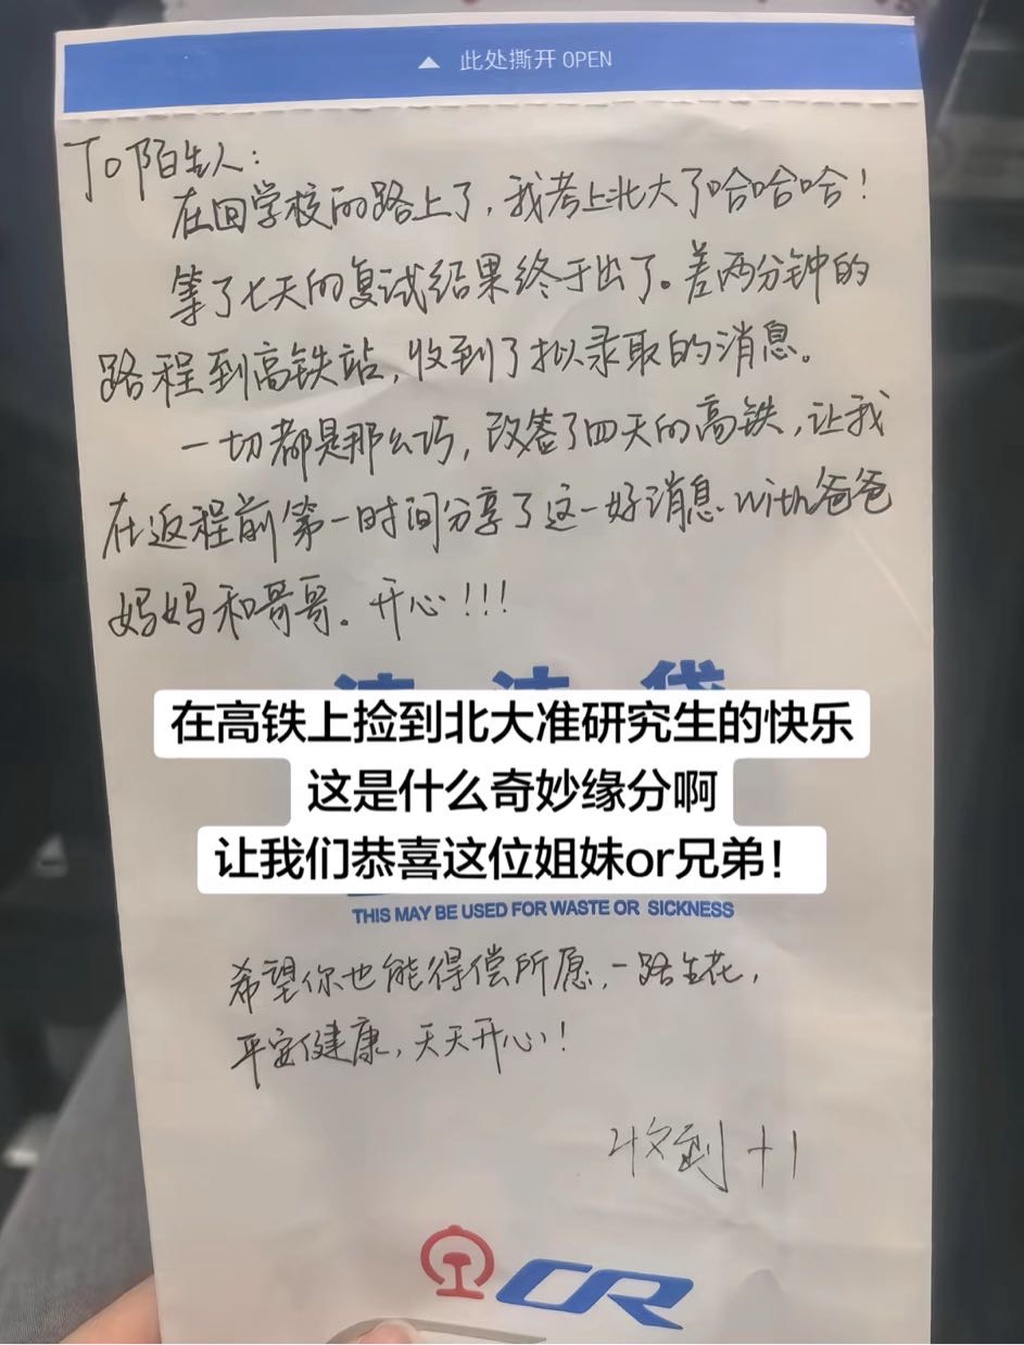 此处撕开 OPEN
To 陌生人：
在回学校的路上了，我考上北大了哈哈哈！
等了七天的复试结果终于出了。差两分钟的
路程到高铁站，收到了拟录取的消息。
一切都是那么巧，改签了四天的高铁，让我
在返程前第一时间分享了这一好消息with爸爸
妈妈和哥哥。开心！！！
在高铁上捡到北大准研究生的快乐
这是什么奇妙缘分啊
让我们恭喜这位姐妹or兄弟！
THIS MAY BE USED FOR WASTE OR SICKNESS
希望你也能得偿所愿，一路生花，
平安健康，天天开心！
收到+1
CR